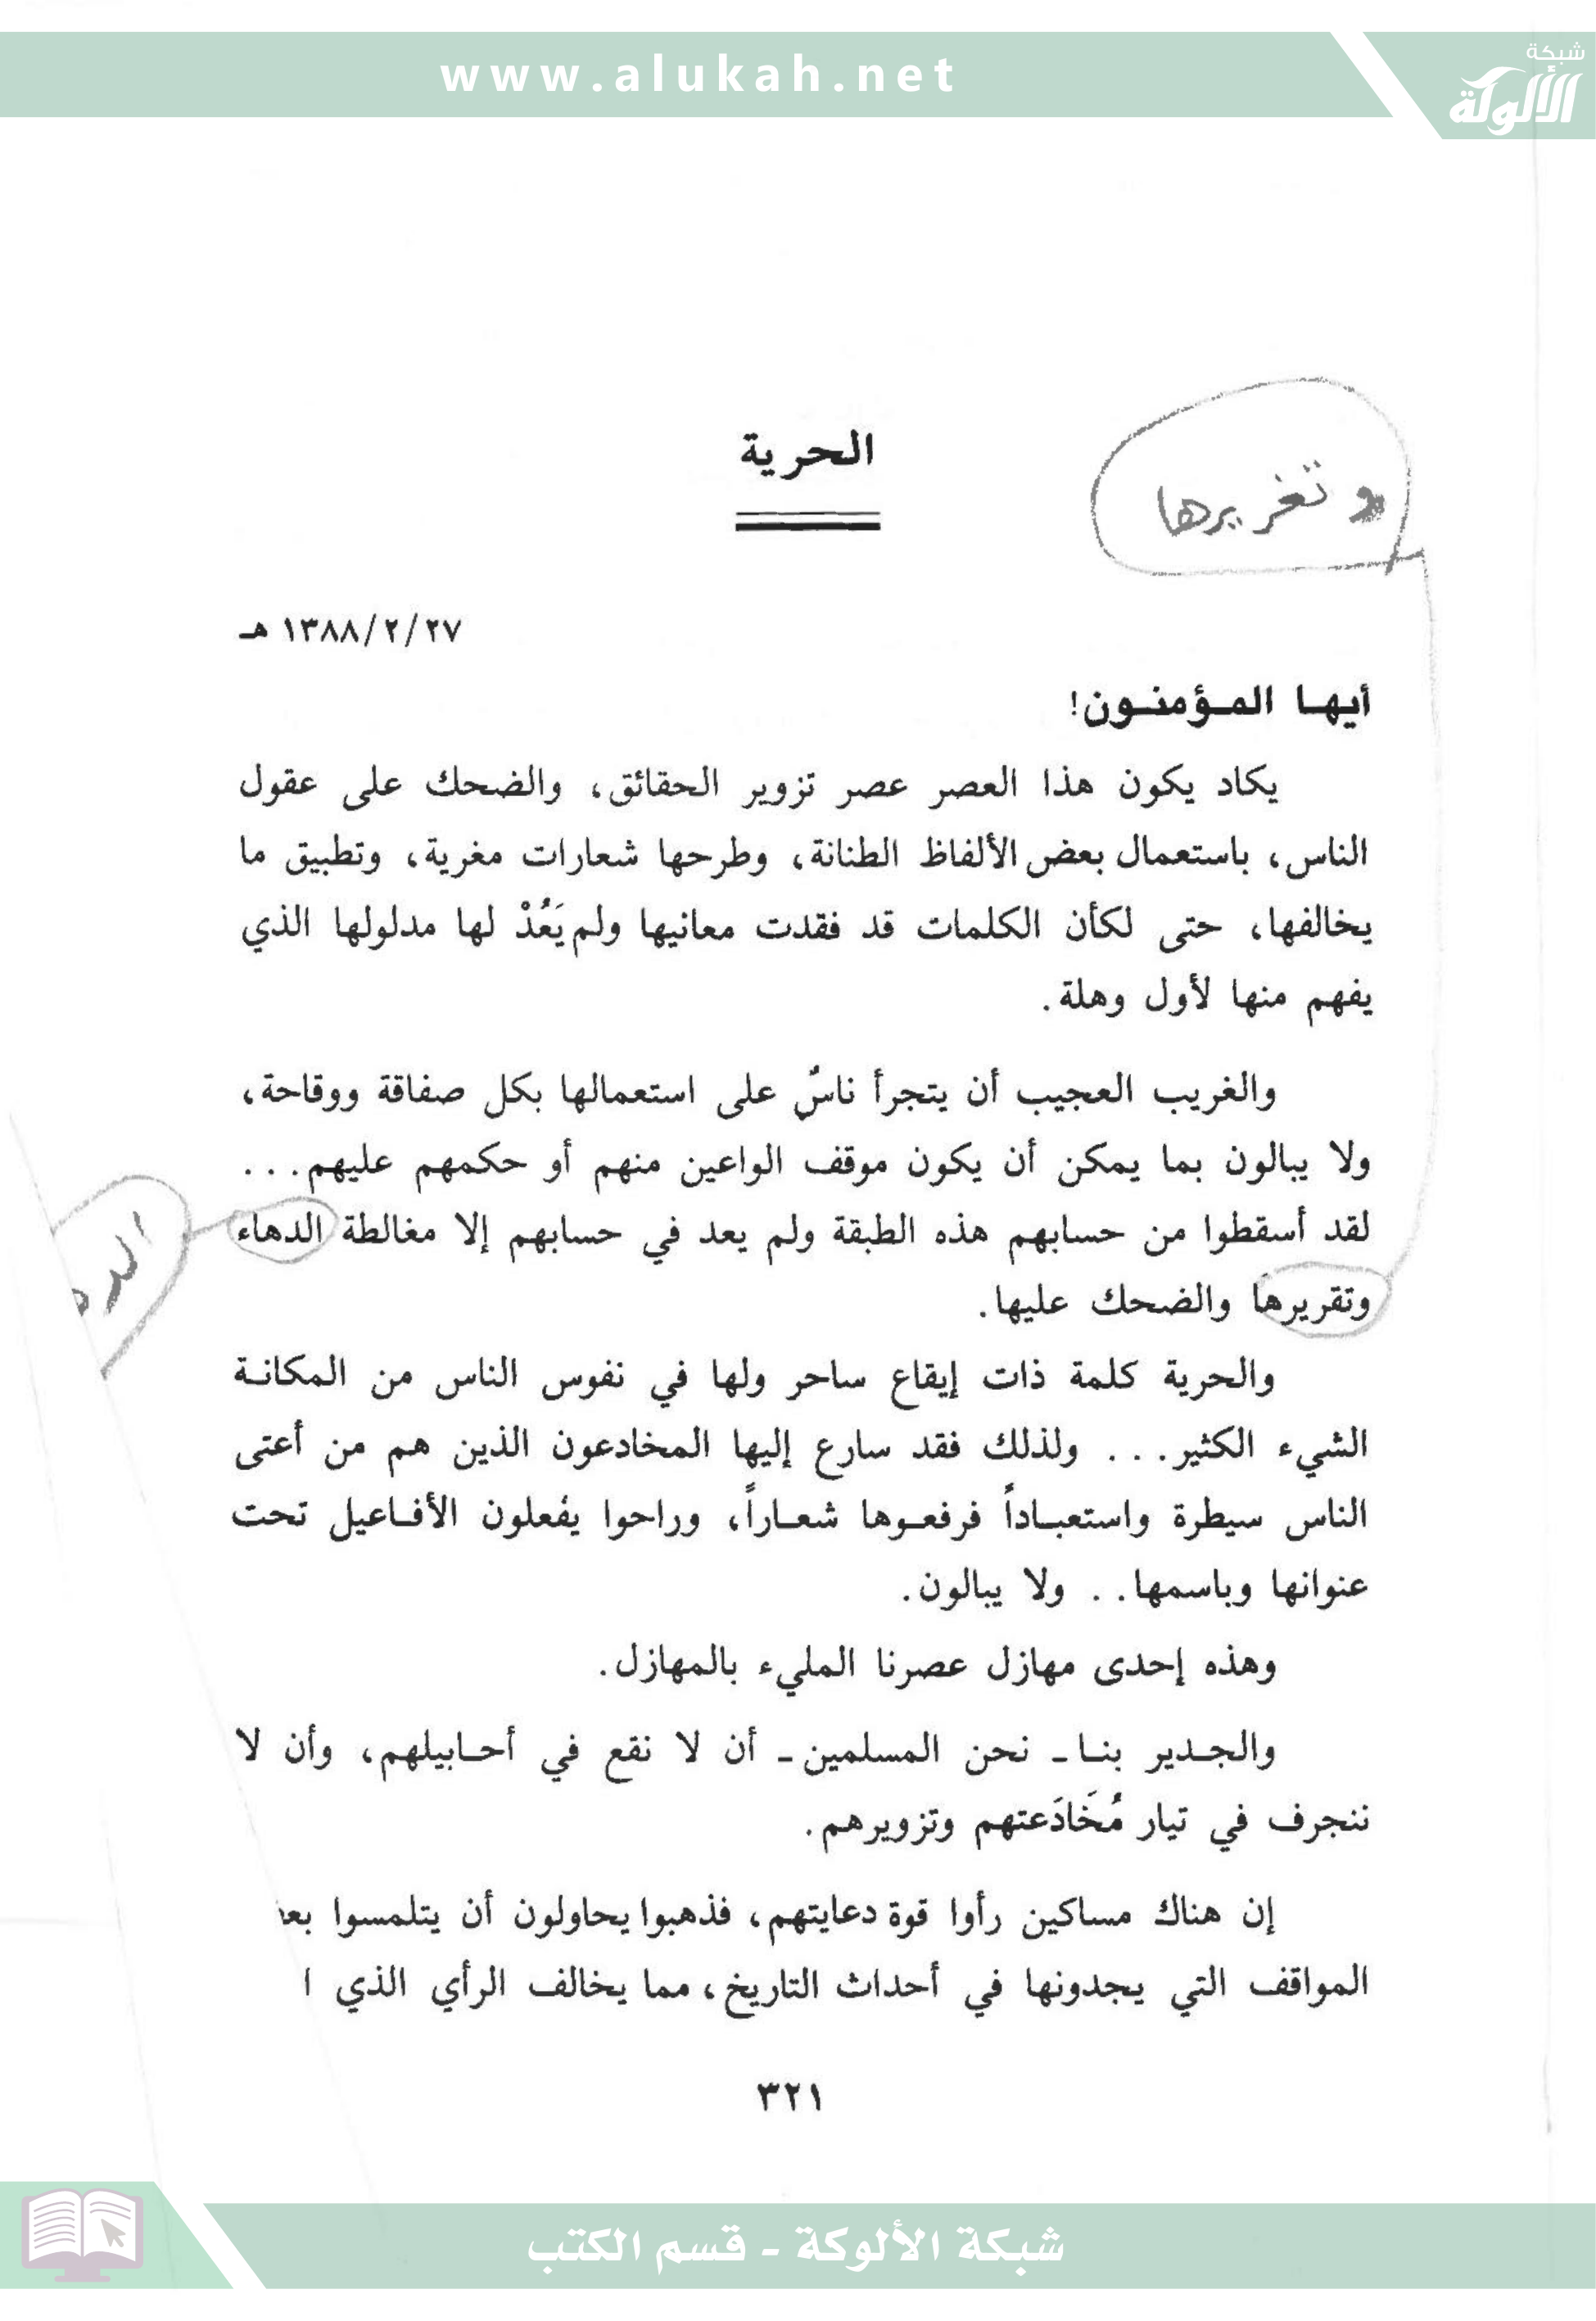 www.alukah.net
شبكة
الألوكة
الحرية
وتغريرها
٢٧/٢/١٣٨٨ هـ
أيها المـؤمنـون!
يكاد يكون هذا العصر عصر تزوير الحقائق، والضحك على عقول
الناس، باستعمال بعض الألفاظ الطنانة، وطرحها شعارات مغرية، وتطبيق ما
يخالفها، حتى لكأن الكلمات قد فقدت معانيها ولم يَعُدْ لها مدلولها الذي
يفهم منها لأول وهلة.
والغريب العجيب أن يتجرأ ناسٌ على استعمالها بكل صفاقة ووقاحة،
ولا يبالون بما يمكن أن يكون موقف الواعين منهم أو حكمهم عليهم...
لقد أسقطوا من حسابهم هذه الطبقة ولم يعد في حسابهم إلا مغالطة الدهاء
وتقريرها والضحك عليها.
والحرية كلمة ذات إيقاع ساحر ولها في نفوس الناس من المكانـة
الشيء الكثير... ولذلك فقد سارع إليها المخادعون الذين هم من أعتى
الناس سيطرة واستعبـاداً فرفعـوها شعـاراً، وراحوا يفعلون الأفـاعيل تحت
عنوانها وباسمها.. ولا يبالون.
وهذه إحدى مهازل عصرنا المليء بالمهازل.
والجـدير بنـا - نحن المسلمين - أن لا نقع في أحـابيلهم، وأن لا
ننجرف في تيار مُخَادَعتهم وتزويرهم.
إن هناك مساكين رأوا قوة دعايتهم، فذهبوا يحاولون أن يتلمسوا
المواقف التي يجدونها في أحداث التاريخ، مما يخالف الرأي الذي
٣٢١
شبكة الألوكة - قسم الكتب